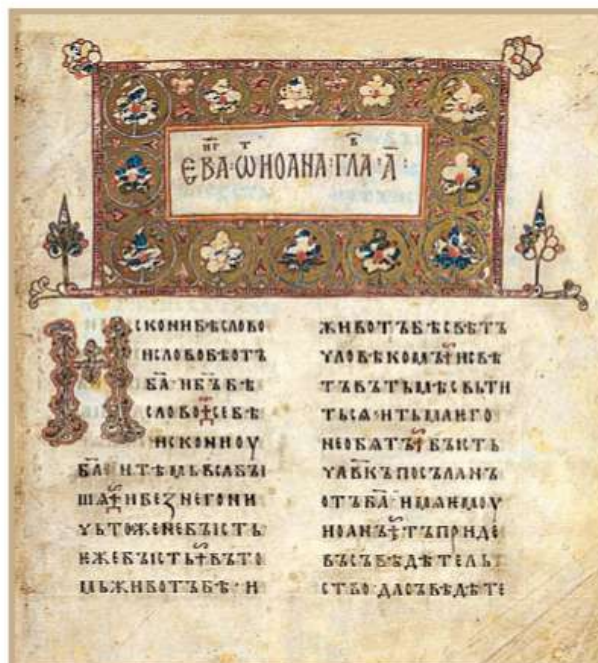 ЕВАⷩ҇ⷢ · Ѡⷮ ИОАНА · ГЛАⷡ · А҃ ·
Исконибѣслово
исловобѣотъ
ба҃ · иб҃ъбѣ
слово☩себѣ
исконноу
ба҃ · итѣмьвсабꙑ
шѧ☩ибезнегони
чьтоженебꙑсть
ѥжебꙑсть☩въто
мьживотъбѣ · и
животъбѣсвѣтъ
чловѣкомъ☩исвѣ
тъвътьмѣсвьти
тьсѧ · итьмаѥго
необѧтъ☩бꙑсть
чл҃вкъпосъланъ
отъба҃ · имѧѥмоу
иоанъ☩тъприде
въсъвѣдѣтель
ство · дасъвѣдѣте